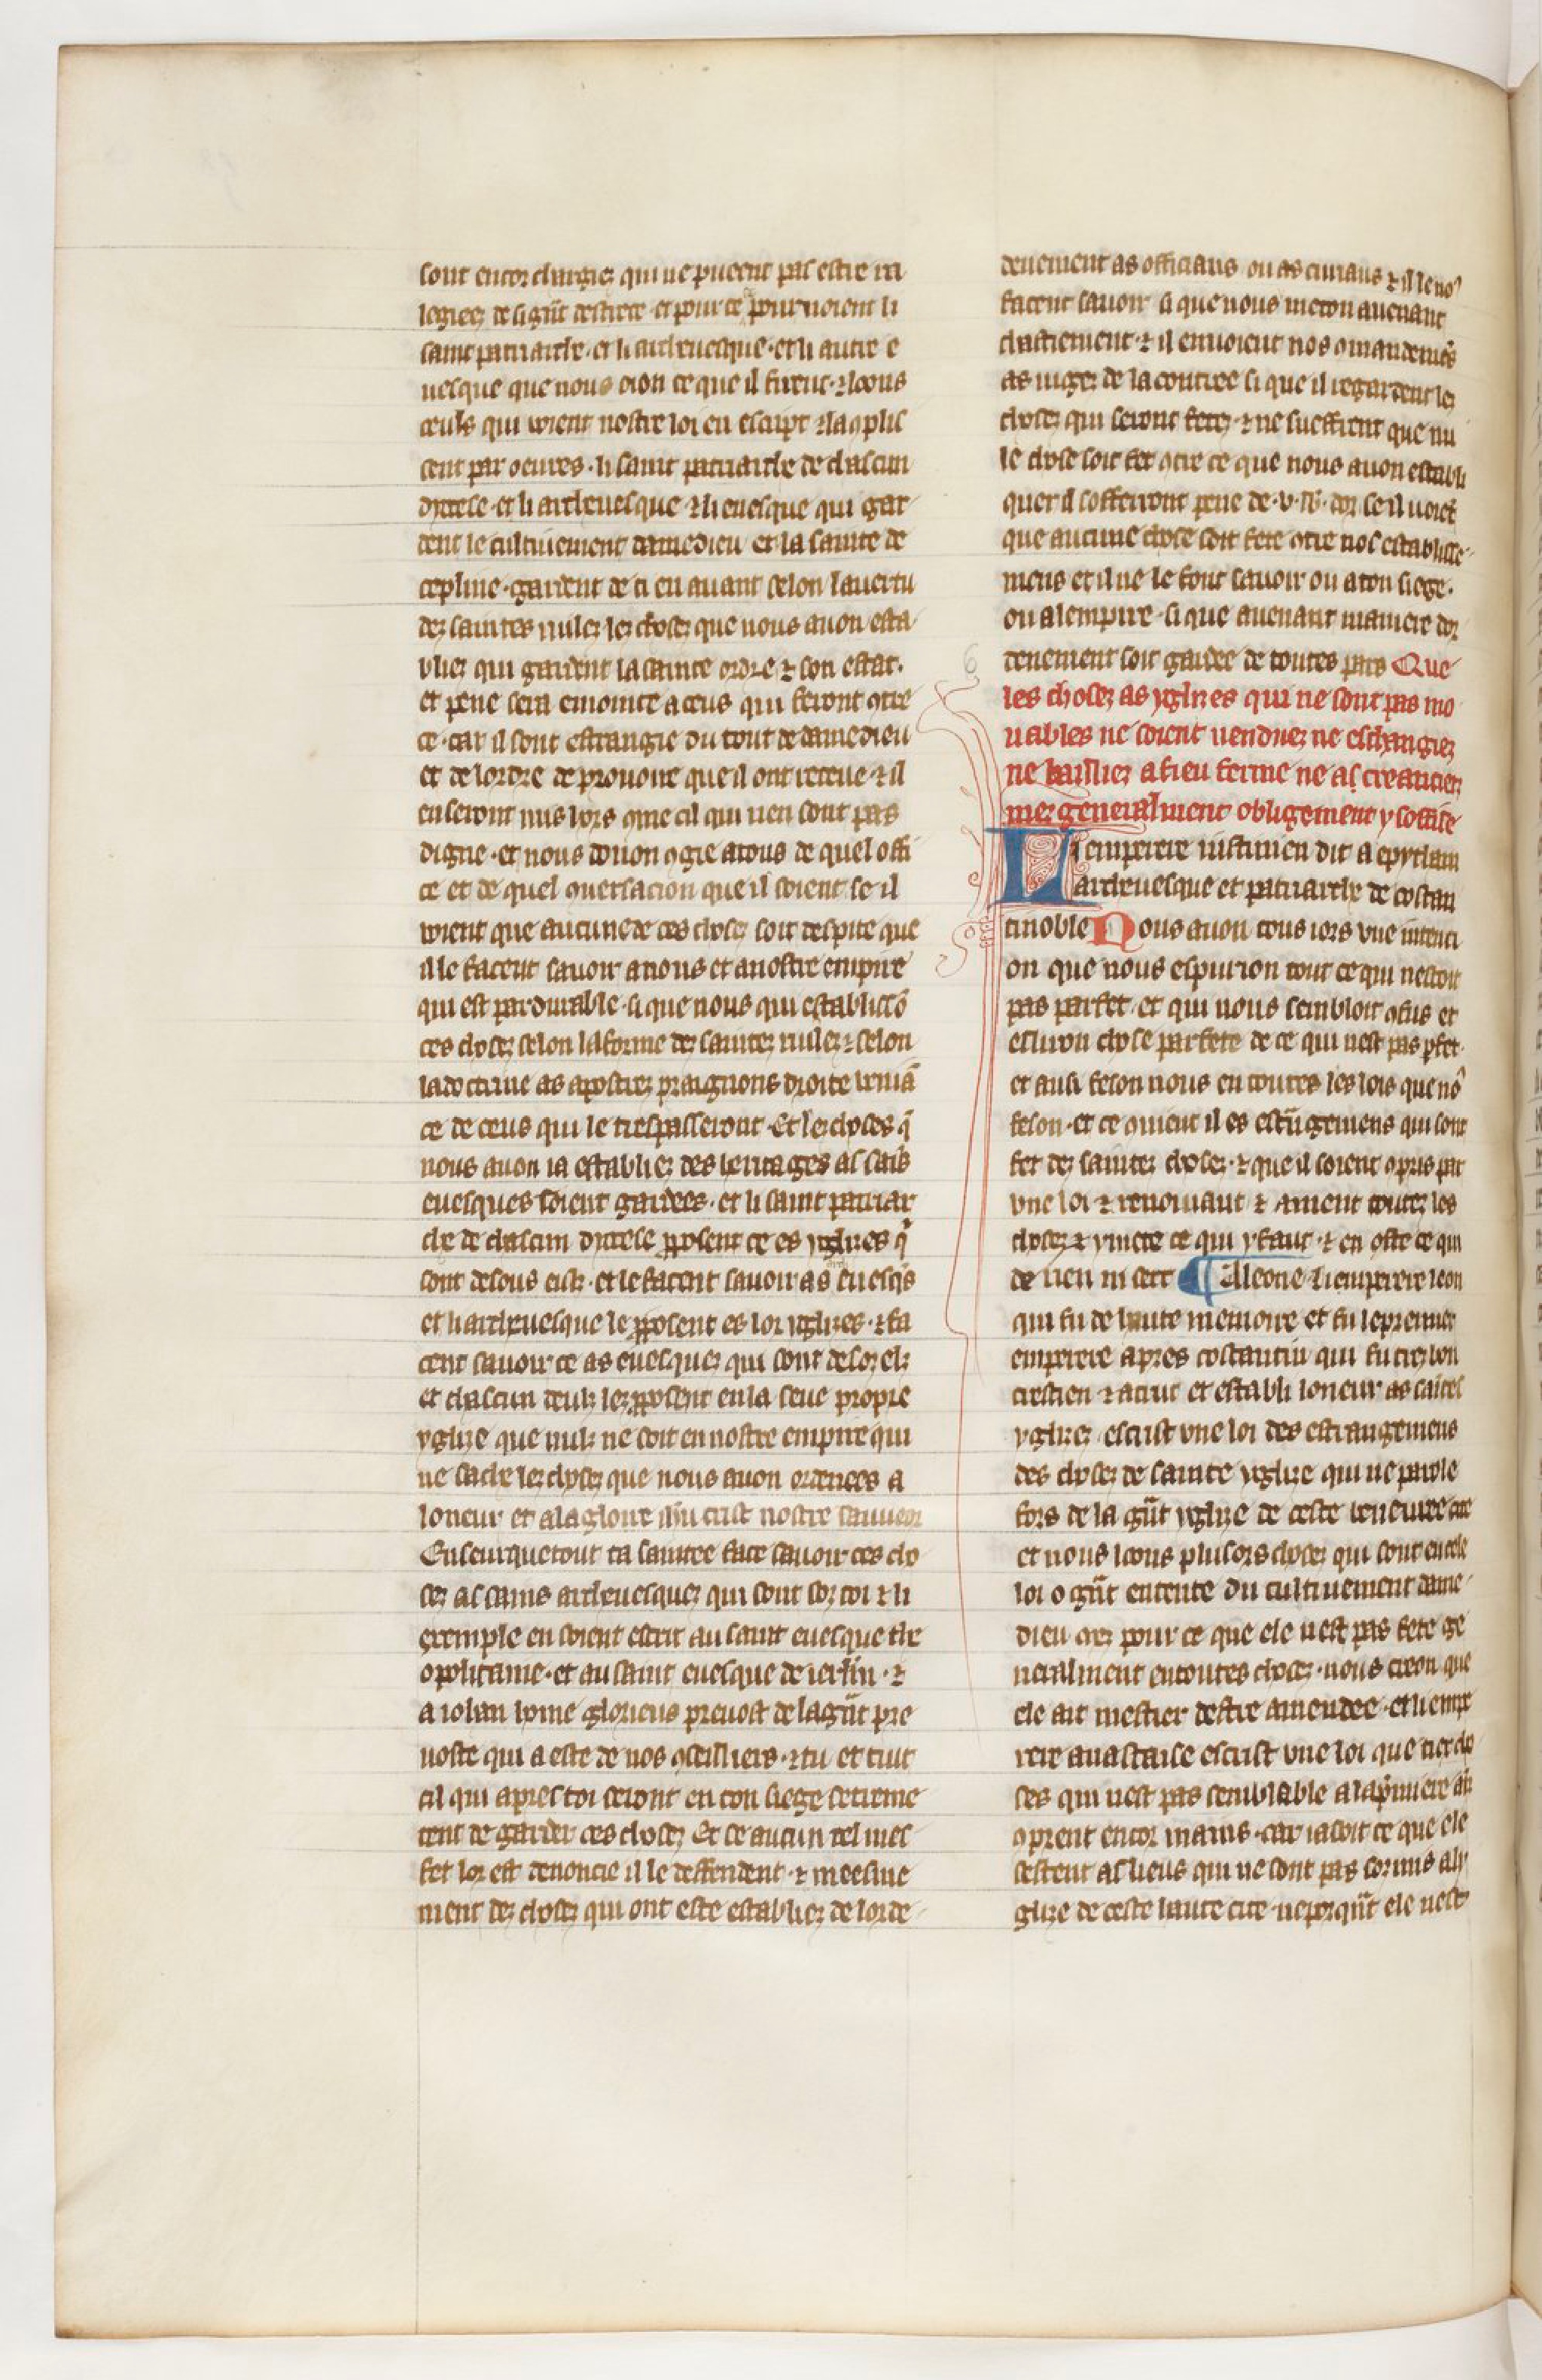 sont encor chargiez qui ne pueent pas estre ra
legiees de si gñt destrece et pour ce pourvoient li
saint patriarche. et li archevesque. et li autre e
vesque que nous oion ce que il firent. ⁊ loons
ceuls qui voient nostre loi en escript ⁊ laoplis
sent par oeuvres. li saint patriarche de chascun
dyocese et li archevesque ⁊ li evesque qui gar
dent le cultivement damedieu et la sainte de
cepline. gardent de ci en avant selon la vertu
dez saintes riulez lez chosez que nous avon esta
bliez qui gardent la sainte ordre ⁊ son estat.
et pene sera emointe a ceus qui feront otre
ce. car il sont estrangie du tout de damedieu
et de lordre de provoire que il ont receue ⁊ il
en seront mis hors ome cil qui nen sont pas
digne. et nous donon ogie a tous de quel offi
ce et de quel oversacion que il soient se il
voient que aucune de ces chosez soit despite que
il le facent savoir a nous et a nostre empire
qui est pardurable. si que nous qui establissō
ces chosez selon la forme dez saintez riulez ⁊ selon
la doctrine as apostrez praignons droite veniā
ce de ceus qui le trespasseront. Et lez choses q̄
nous avon ia establiez des heritages as sais
evesques soient gardees. et li saint patriar
che de chascun dyocese posent ce es yglises q̄
sont desous euls. et le facent savoir as evesq̄s
et li archevesque le posent es lor yglises. ⁊ fa
cent savoir ce as evesquez qui sont desoz els
et chascun deulz lez posent en la seue propre
yglize que nulz ne soit en nostre empire qui
ne sache lez chosez que nous avon ordenees a
loneur et a la gloire ihu crist nostre sauveor
Enseurquetout ta saintee face savoir ces cho
sez as sains archevesquez qui sont soz toi ⁊ li
exemple en soient escrit au saint evesque the
opolitaine. et au saint evesque de ierlm. ⁊
a iohan home glorieus prevost de la gñt pre
voste qui a este de nos oseilliers. ⁊ tu et tuit
cil qui apres toi seront en ton siege setieme
tent de garder ces chosez Et se aucun tel mes
fet lor est denoncie il le deffendent. ⁊ meesme
ment dez chosez qui ont este establiez de lorde
denement as officiaus ou as curiaus ⁊ il le noꝰ
facent savoir si que nous meton avenant
chastiement. ⁊ il envoient nos omandemēs
as iugez de la contree si que il regardent lez
chosez qui seront fetez ⁊ ne sueffrent que nu
le chose soit fet otre ce que nous avon establi
quer il sofferront pene de .v. lb. dor se il voiet
que aucune chose soit fete otre nos establisse
mens et il ne le font savoir ou a ton siege.
ou a lempire. si que avenant maniere dor
denement soit gardee de toutes pars Que
les chosez as yglizes qui ne sont pas mo
uables ne soient venduez ne eschangiez
ne bailliez a fieu ferme ne as creanciers
mez generalment obligement y soffise
Li emperere iustinien dit a epytham
archevesque et patriarche de costan
tinoble Nous avon tous iors une intenci
on que nous espurion tout ce qui nestoit
pas parfet. et qui nous sembloit ofus et
esluron chose parfete de ce qui nest pas pfet.
et ausi feson nous en toutes les lois que noꝰ
feson. et ce ovient il es estrāgemens qui sont
fet dez saintez chosez. ⁊ que il soient opris par
une loi ⁊ renoiuant ⁊ ament toutez les
chosez ⁊ y mete ce qui y faut. ⁊ en oste ce qui
de rien ni sert ¶ A leone. li emperere leon
qui fu de haute memoire et fu le premier
emperere apres costantin qui fu trez bon
crestien ⁊ acrut et establi loneur as saites
yglizez escrist une loi des estrangemens
des chosez de sainte yglize qui ne parole
fors de la gñt yglize de ceste beneuree cite
et nous loons plusors chosez qui sont en cele
loi o gñt entente du cultivement dame
dieu mez pour ce que ele nest pas fete ge
neralment en toutes chosez. nous creon que
ele ait mestier destre amendee. et li empe
rere anastaise escrist une loi que tiex cho
ses qui nest pas semblable a la p̄miere ain
oprent encor mains. car ia soit ce que ele
sestent as lieus qui ne sont pas sozmis a ly
glize de ceste haute cite. neporquāt ele nest